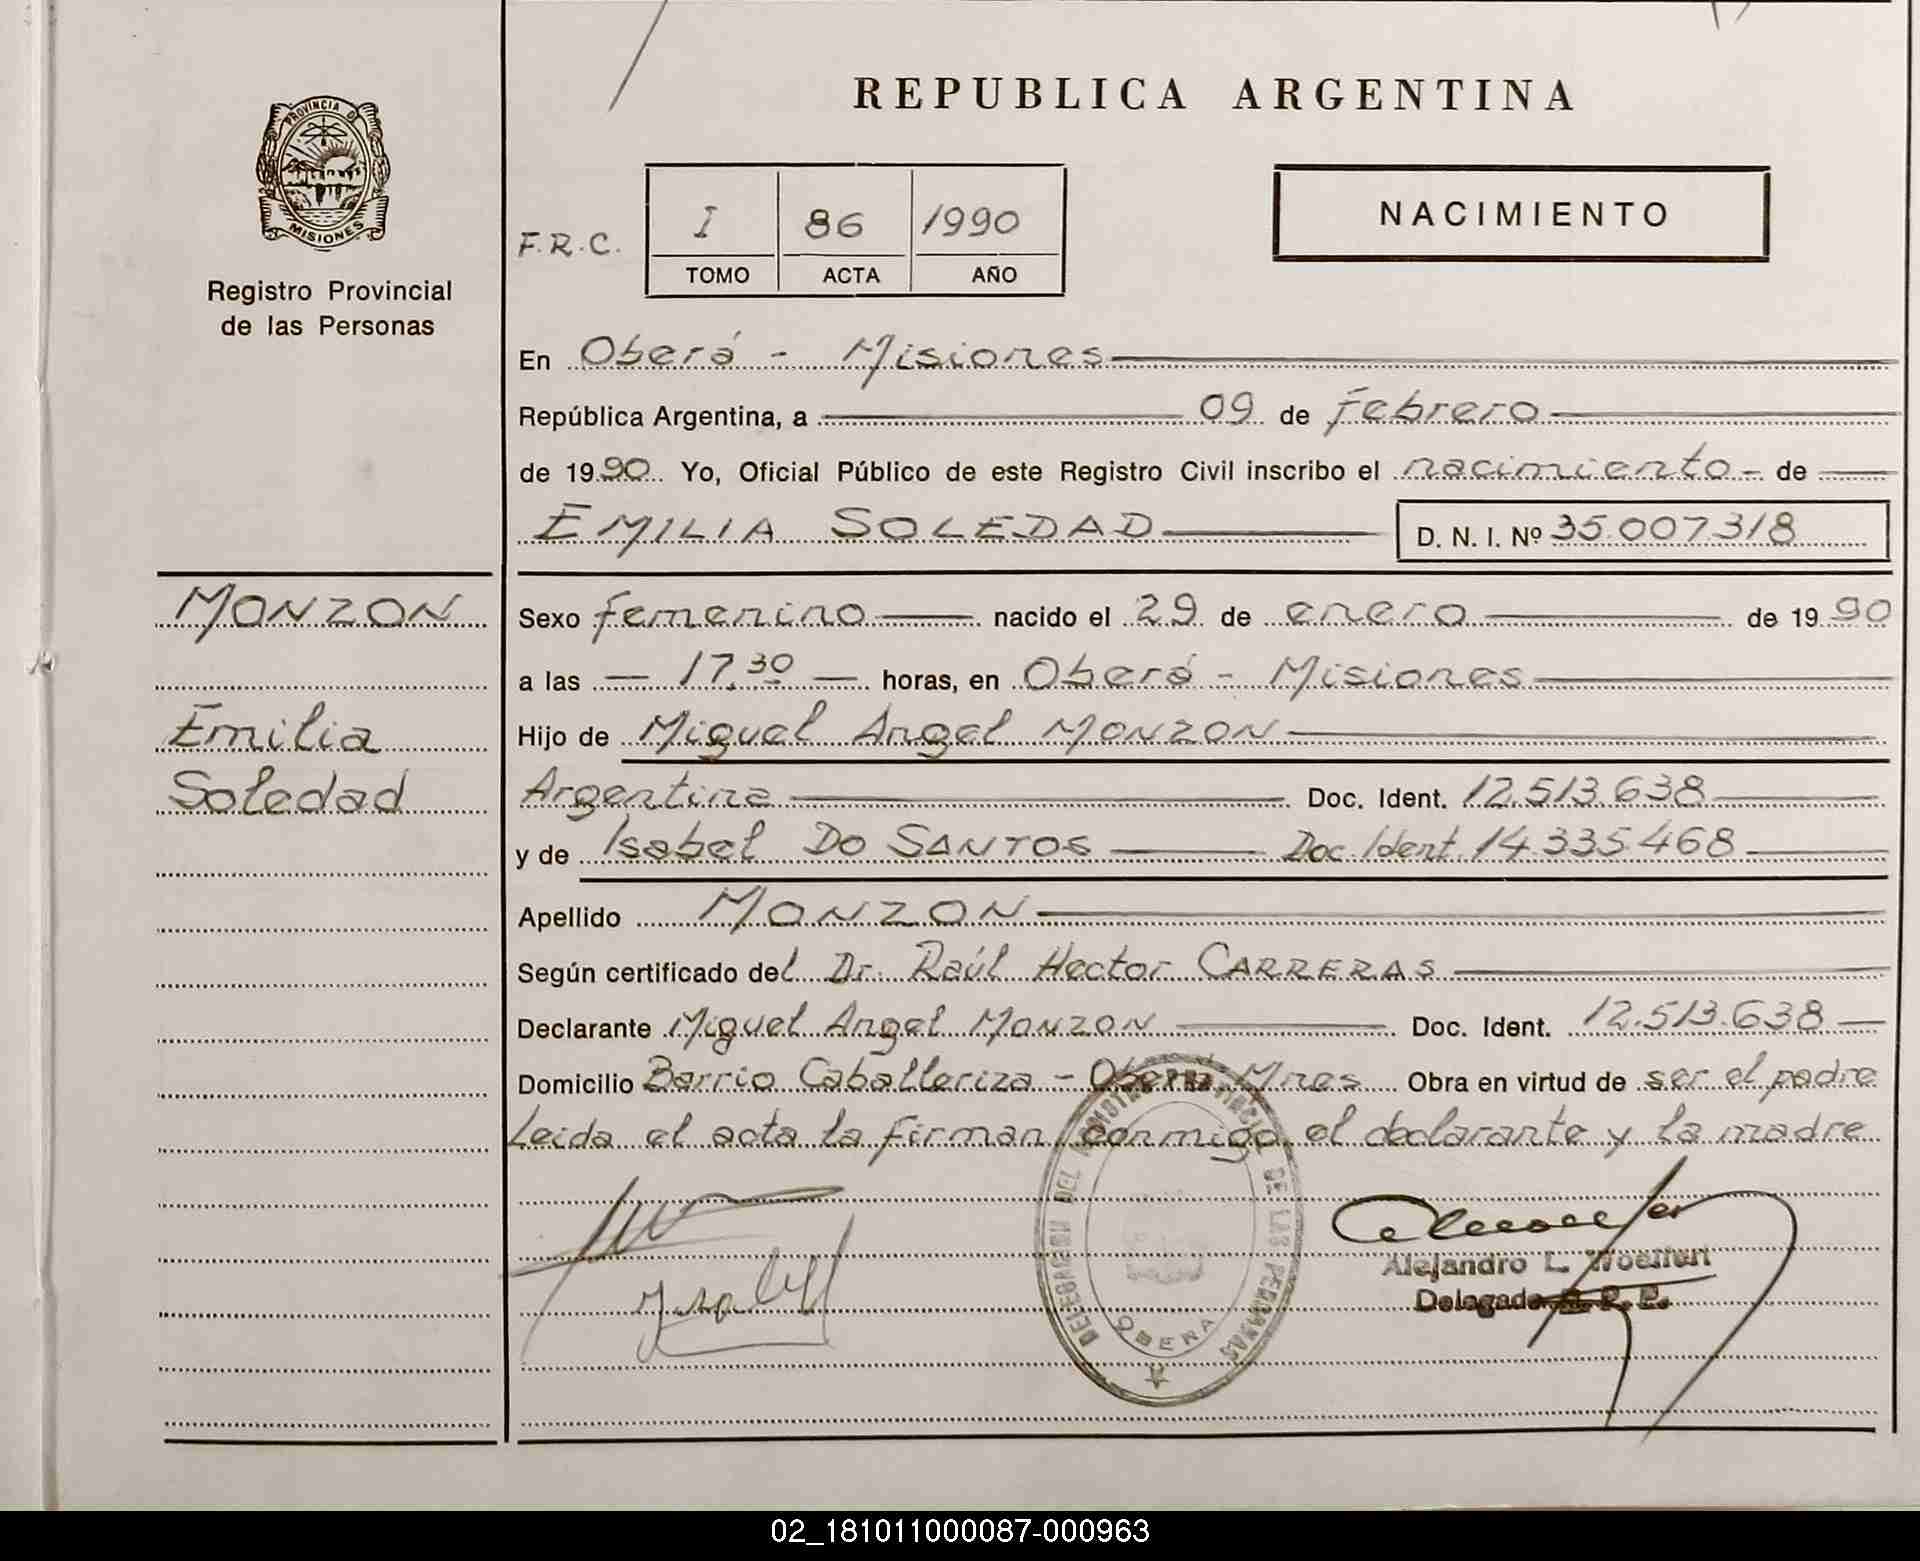 REPUBLICA ARGENTINA
PROVINCIA DE
MISIONES
Registro Provincial
de las Personas
F.R.C.
I 86 1990
TOMO ACTA AÑO
NACIMIENTO
En Oberá - Misiones
República Argentina, a 09 de Febrero
de 1990. Yo, Oficial Público de este Registro Civil inscribo el nacimiento - de
EMILIA SOLEDAD D. N. I. Nº 35.007.318
MONZON
Emilia
Soledad
Sexo femenino nacido el 29 de enero de 1990
a las — 17,30 — horas, en Oberá - Misiones
Hijo de Miguel Angel MONZON
Argentina Doc. Ident. 12.513.638
y de Isabel DO SANTOS Doc. Ident. 14.335.468
Apellido MONZON
Según certificado del Dr. Raúl Hector CARRERAS
Declarante Miguel Angel MONZON Doc. Ident. 12.513.638
Domicilio Barrio Caballeriza - Oberá Mnes Obra en virtud de ser el padre
Leida el acta la firman conmigo el declarante y la madre
DELEGACION DEL REGISTRO PROVINCIAL DE LAS PERSONAS
OBERA
Alejandro L.
Delegado R. P. P.
02_181011000087-000963